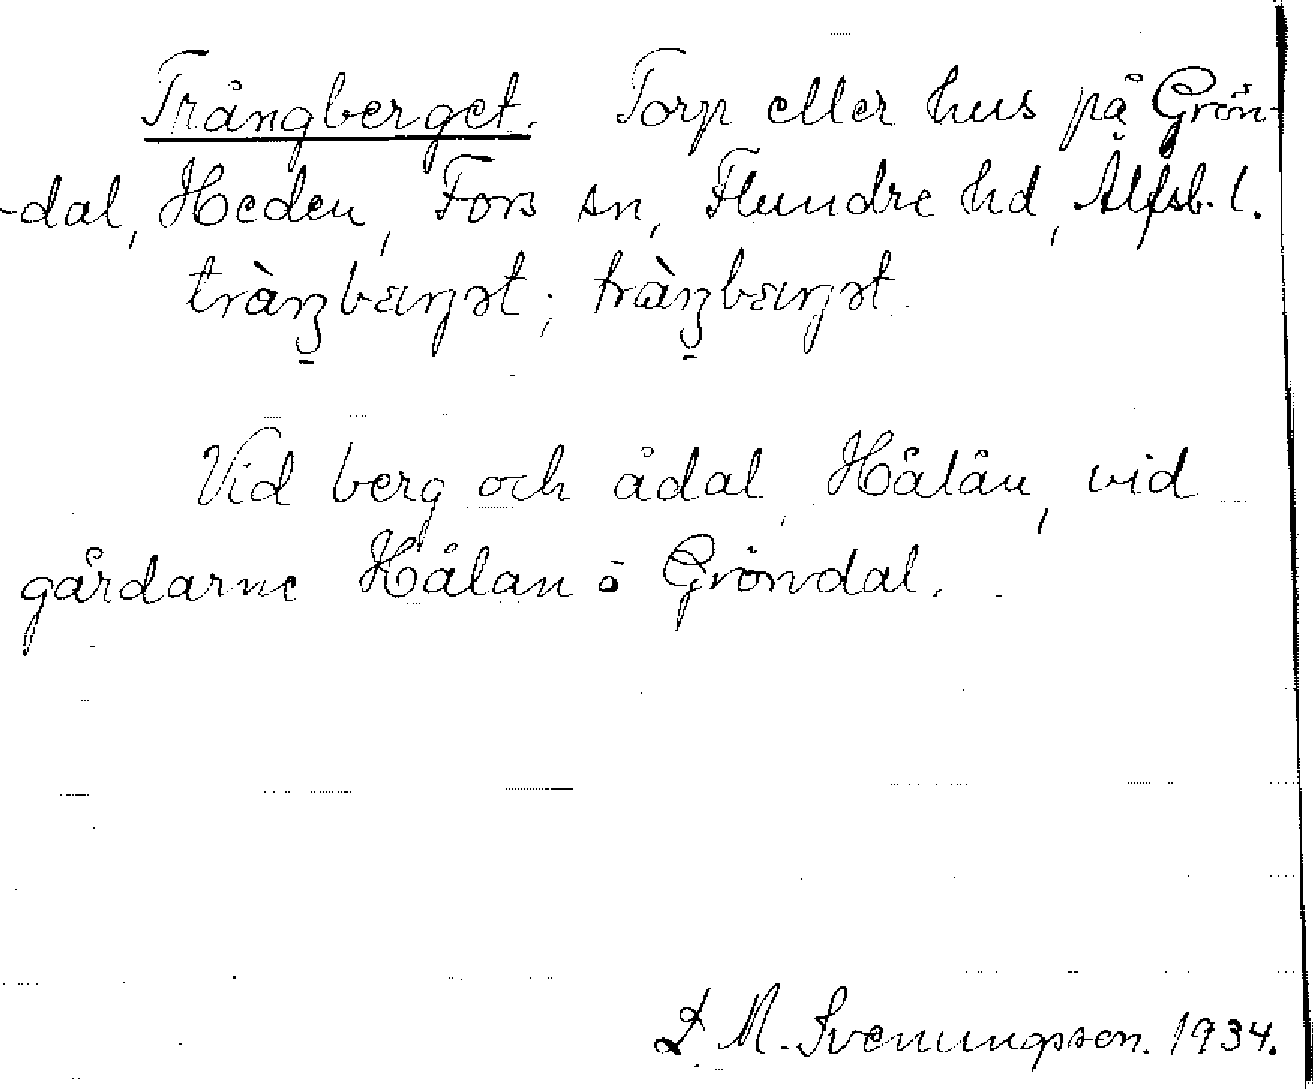 Trångberget. Torp eller hus på Grön-
-dal, Heden, Fors sn, Flundre hd, Älfsb. l.
Vid berg och ådal, Hålån, vid
gårdarne Hålan o Gröndal.
M. Svenungsson. 1934.